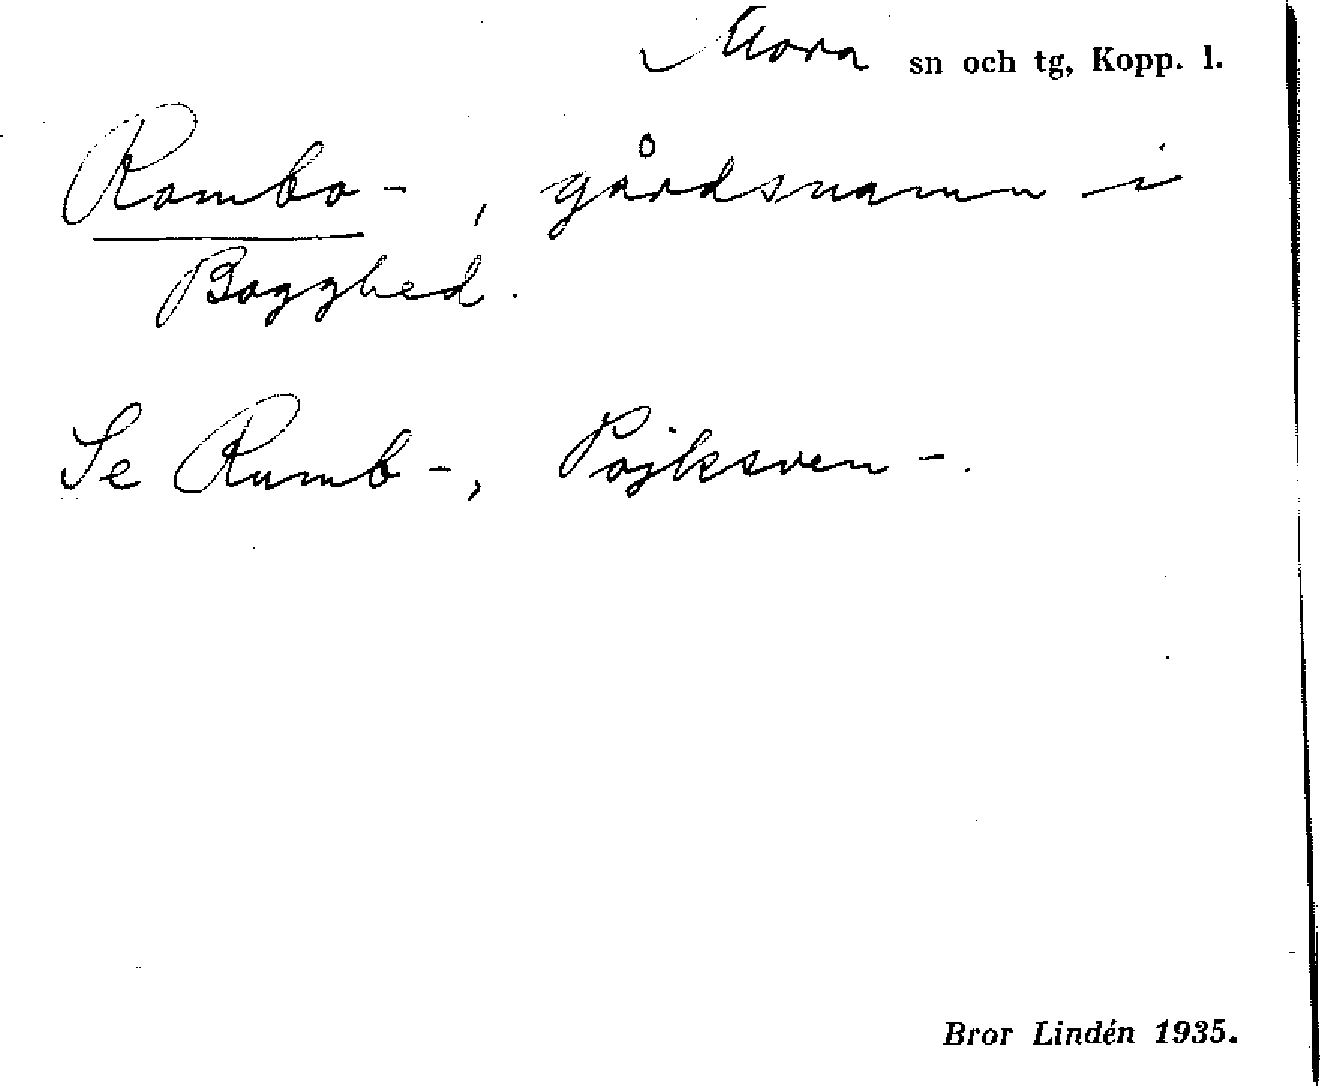 Mora sn och tg, Kopp. l.
Rombo-, gårdsnamn i
Bogghed.
Se Rumb-, Pojksven-.
Bror Lindén 1935.